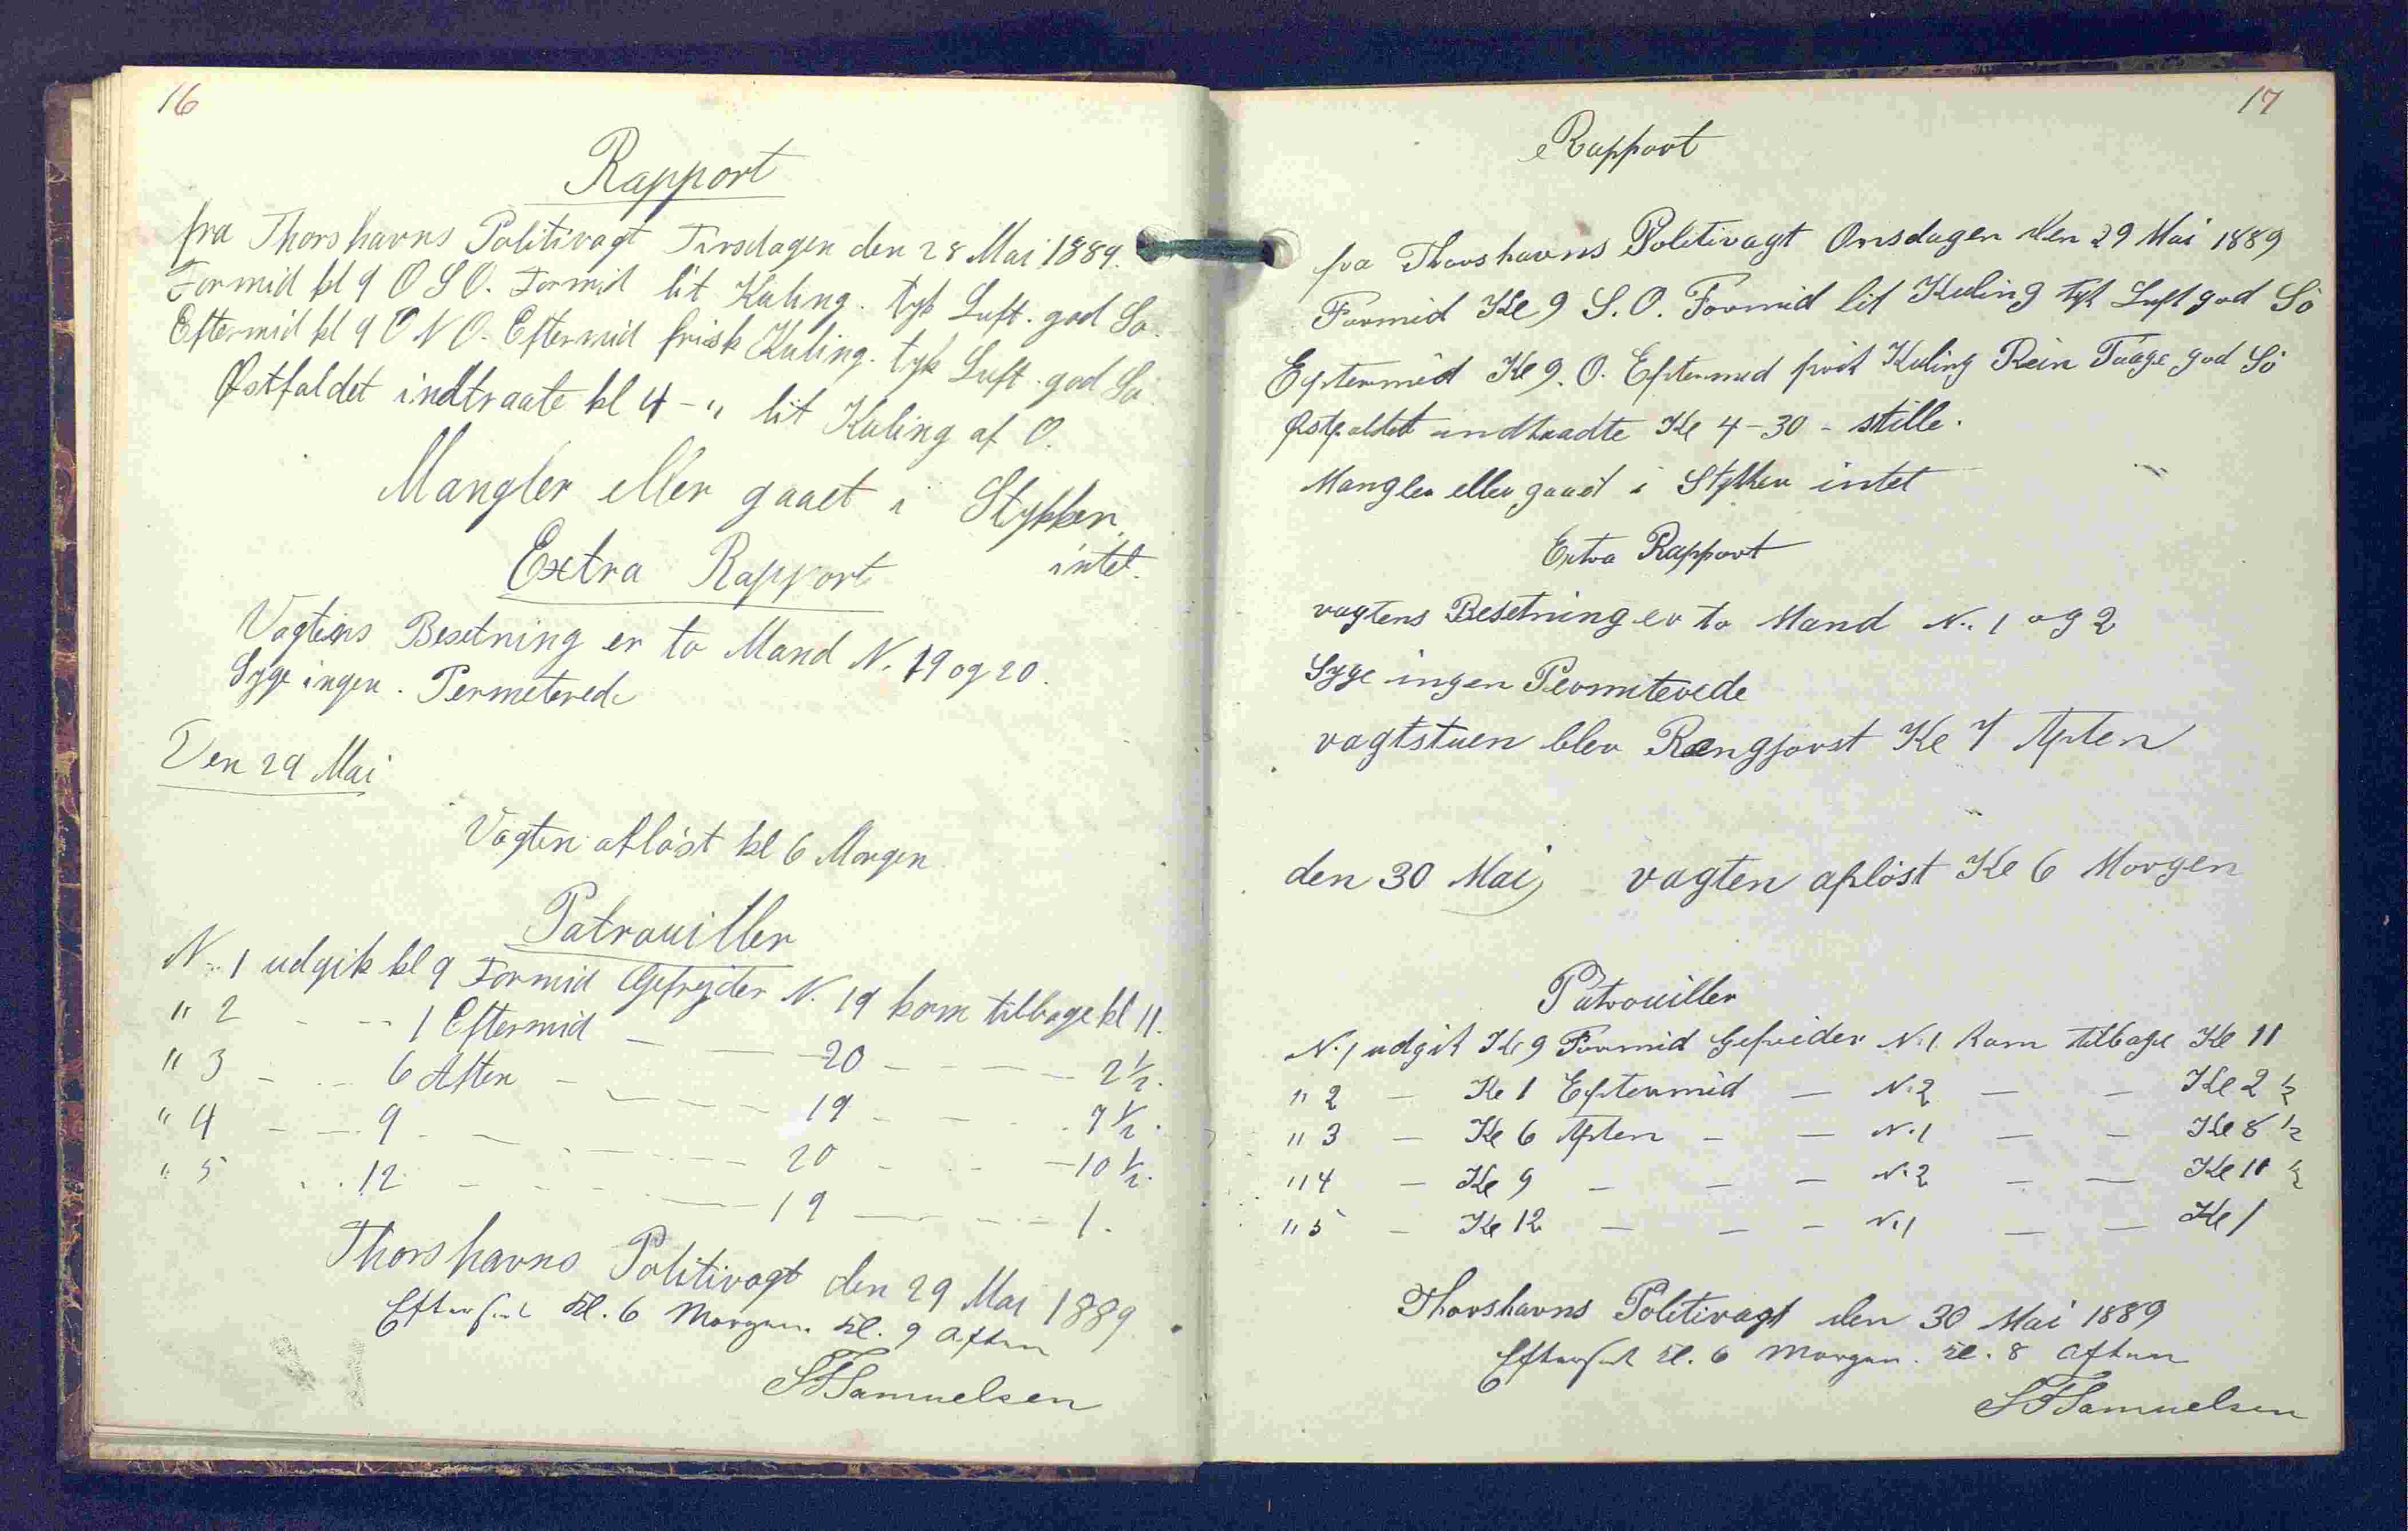 16
Rapport
fra Thorshavns Politivagt Tirsdagen den 28 Mai 1889.
Formid kl 9 O S O. Formid lit Kuling. tyk Luft. god So.
Eftermid kl 9 O N O. Eftermid frisk Kuling. tyk Luft. god So
Østfaldet indtraate kl 4 - " lit Kuling af O.
Mangler eller gaaet i Stykker.
intet.
Extra Rapport
Vagtens Besetning er to Mand N. 19 og 20.
Syge ingen. Permeterede
Den 29 Mai
Vagten afløst kl 6 Morgen
Patrouiller
N. 1 udgik kl 9 Formid Gefrejder N. 19 kom tilbage kl 11.
" 2 - - 1 Eftermid - - 20 - - - 2 1/2.
" 3 - - 6 Aften - - - 19 - - - 7 1/2.
" 4 - - 9 - - - - 20 - - - 10 1/2.
" 5 - - 12 - - - - 19 - - - 1.
Thorshavns Politivagt den 29 Mai 1889
Efterset Kl. 6 Morgen. Kl. 9 Aften
SFSamuelsen
17
Rapport
fra Thorshavns Politivagt Onsdagen den 29 Mai 1889
Formid Kl 9 S. O. Formid lit Kuling tyk Luft god Sö
Eftermid Kl 9. O. Eftermid frisk Kuling Rein Taage god Sö
Østfaldet indtraadte Kl 4-30 - stille.
Mangler eller gaaet i Stykker intet
Extra Rapport
vagtens Besetning er to Mand N. 1 og 2
Syge ingen Permiterede
vagtstuen blev Rængjorst Kl 7 Aften
den 30 Mai vagten afløst Kl 6 Morgen
Patrouiller
N. 1 udgik Kl 9 Formid Gefreider N. 1 kom tilbage Kl 11
" 2 - Kl 1 Eftermid - N. 2 - - Kl 2 1/2
" 3 - Kl 6 Aften - - N. 1 - - Kl 8 1/2
" 4 - Kl 9 - - - N. 2 - - Kl 10 1/2
" 5 - Kl 12 - - - N. 1 - - Kl 1
Thorshavns Politivagt den 30 Mai 1889
Efterset Kl. 6 Morgen. Kl. 8 Aften
SFSamuelsen